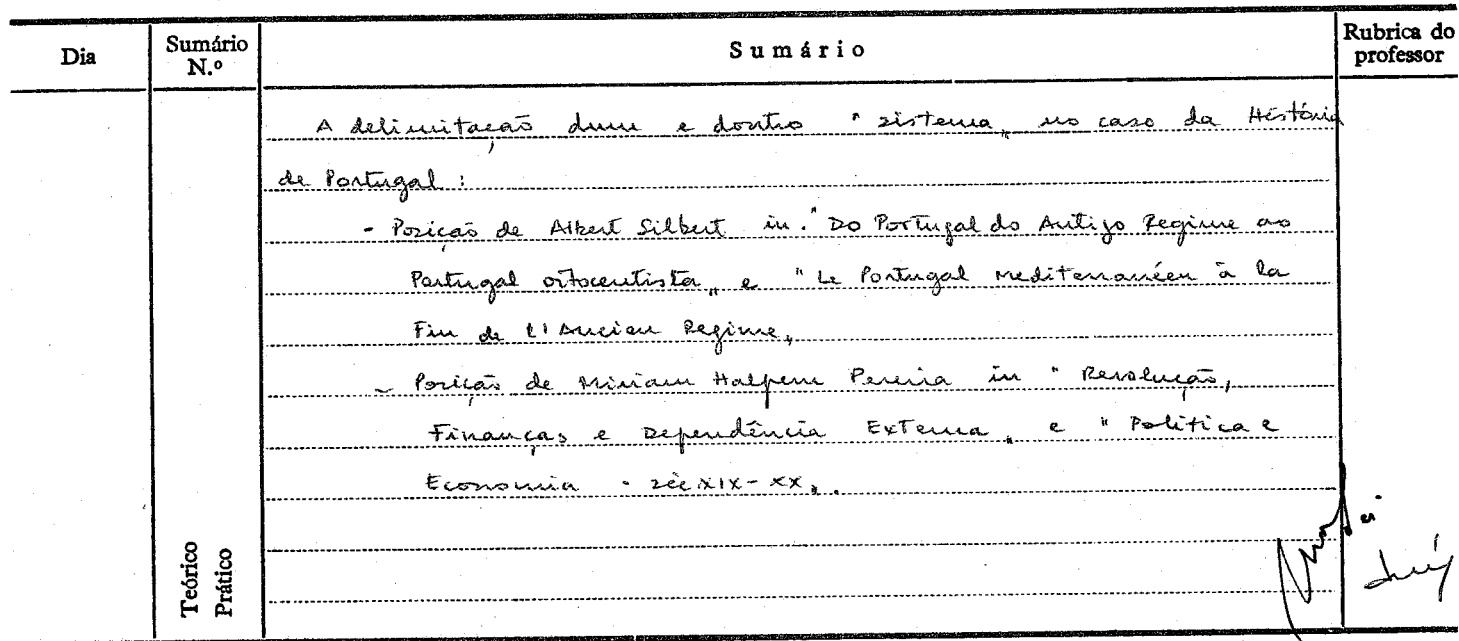 Dia
Sumário
N.º
Sumário
Rubrica do
professor
A delimitação dum e doutro "sistema" no caso da História
de Portugal :
- Posição de Albert Silbert in. "Do Portugal do Antigo Regime ao
Portugal oitocentista" e "Le Portugal Mediterranéen à la
Fin de l'Ancien Regime"
- Posição de Miriam Halpern Pereira in "Revolução,
Finanças e Dependência Externa" e "Política e
Economia - séc XIX-XX".
Teórico
Prático